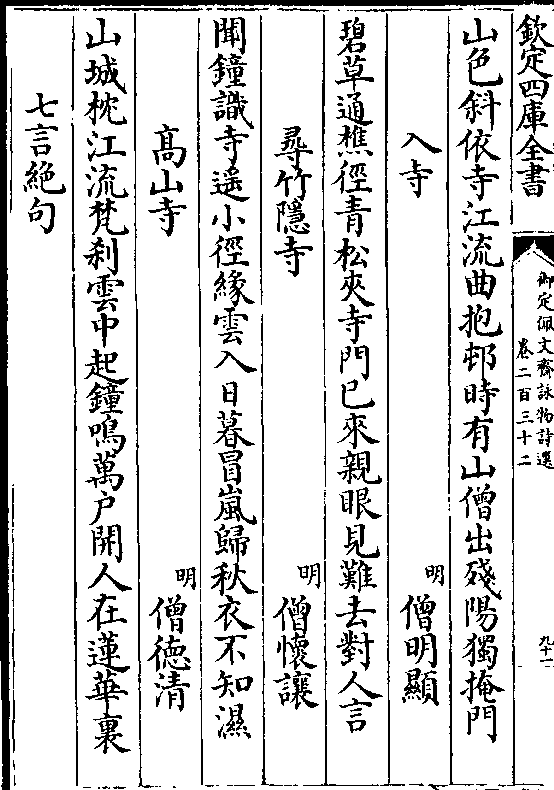 欽定四庫全書
御定佩文齋詠物詩選
卷二百三十二
九十一
山色斜依寺江流曲抱邨時有山僧出殘陽獨掩門
入寺
明
僧明顯
碧草通樵徑青松夾寺門已來親眼見難去對人言
尋竹隱寺
明
僧懷讓
聞鐘識寺遥小徑緣雲入日暮冒嵐歸秋衣不知濕
髙山寺
明
僧徳清
山城枕江流梵刹雲中起鐘鳴萬户開人在蓮華裏
七言絶句